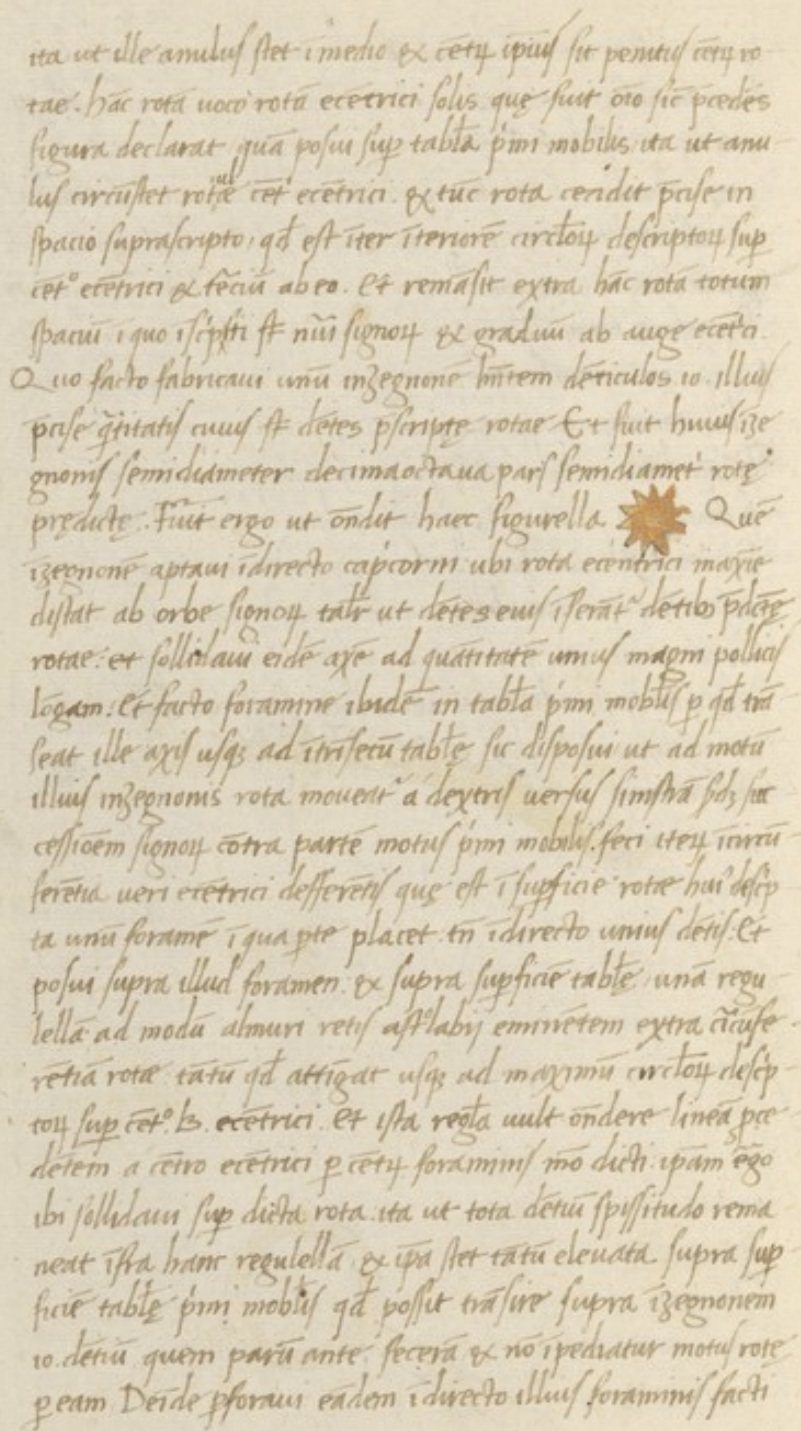 ita ut ille anulus stet ī medio & cētꝝ ip̄ius sit penitus cētꝝ ro
tae. hāc rotā uoco rotā ecētrici solis quę fuit oīo sic p̄cedēs
figura declarat quā posui sup̄ tablā p'mi mobilis ita ut anu
lus circūstet rotul̄ae cēt' ecētrici. & tūc rota cecidit p̄cise in
spacio suprascripto, qd̄ est īter īteriorē circl̄oꝝ descriptoꝝ sup̄
cēt° ecētrici & t̄ēciū ab eo. Et remāsit extra hāc rotā totum
spaciū ī quo īsc'pti st̄ nūi signoꝝ & graduū ab auge ecēt'ci
Quo facto fabricaui unū inzegnonē hn̄tem dēticulos 10. illius
p̄cise q̄titatis cuius st̄ dētes p̄scriptę rotae Et fuit huius īze
gnonis semidiameter decimaoctaua pars semidiamet' rotę
prędictę. Fuit ergo ut ōndit haec figurella Quē
īzegnonē aptaui īdirecto cap'corni ubi rota ecentrici maxīe
distat ab orbe signoꝝ talr̄ ut dētes eius īserāt᷑ dētibꝫ p̄dctę
rotae: et sollidaui eidē axē ad quātitatē unius magni pollicis
lōgam: Et facto foramine ibidē in tablā p'mi mobl̄is ꝑ qd̄ trā
seat ille axis usqꝫ ad ītrīsecū tabl̄ę sic disposui ut ad motū
illius inzegnonis rota moueat᷑ a dextris uersus sinistrā sꝫ suc
cessioēm signoꝝ cōtra partē motus p'mi mobilis. feci iteꝝ īcircū
ferētia ueri ecētrici defferētis quę est ī sup̄ficie rotae hui' desc'p
ta unū foramē ī qua ꝑte placet. tn̄ īdirecto unius dētis. Et
posui supra illud foramen & supra sup̄ficiē tabl̄ę unā regu
lellā ad modū almuri retis ast°labij eminētem extra c'cūfe
rētiā rotae tātū qd̄ attīgat usqꝫ ad maximū circl̄oꝝ desc'p
toꝝ sup̄ cēt° B. ecētrici. Et ista regl̄a uult ōndere lineā p̄ce
dētem a cētro ecētrici ꝑ cētꝝ foraminis mō dicti. ip̄am ēgo
ibi sollidaui sup̄ dicta rota. ita ut tota dētiū spissitudo rema
neat īfra hanc regulellā. & ip̄a stet tātū eleuata supra sup̄
ficiē tabl̄ę p'mi mobl̄is qd̄ possit trāsire supra īzegnonem
10. dētiū quem parū ante fecerā & nō īpediatur motus rotę
ꝑ eam Deīde ꝑforaui eādem īdirecto illius foraminis facti